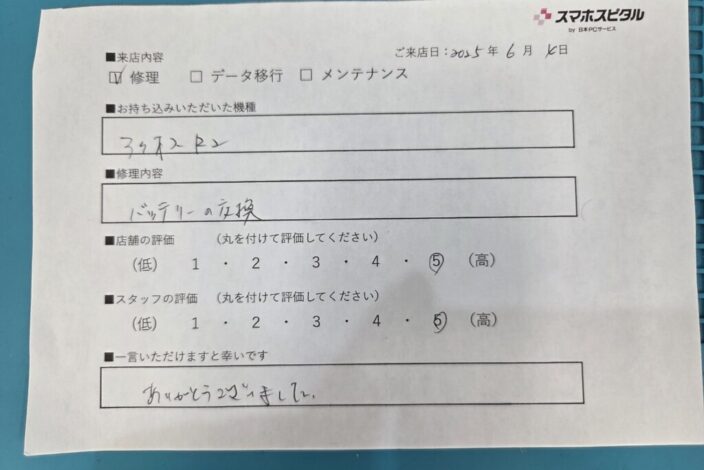 スマホスピタル
by 日本PCサービス
■来店内容
ご来店日：2025年 6月 日
☑ 修理 □ データ移行 □ メンテナンス
■お持ち込みいただいた機種
■修理内容
バッテリーの交換
■店舗の評価 （丸を付けて評価してください）
（低） 1 ・ 2 ・ 3 ・ 4 ・ 5 （高）
■スタッフの評価 （丸を付けて評価してください）
（低） 1 ・ 2 ・ 3 ・ 4 ・ 5 （高）
■一言いただけますと幸いです
ありがとうございました。